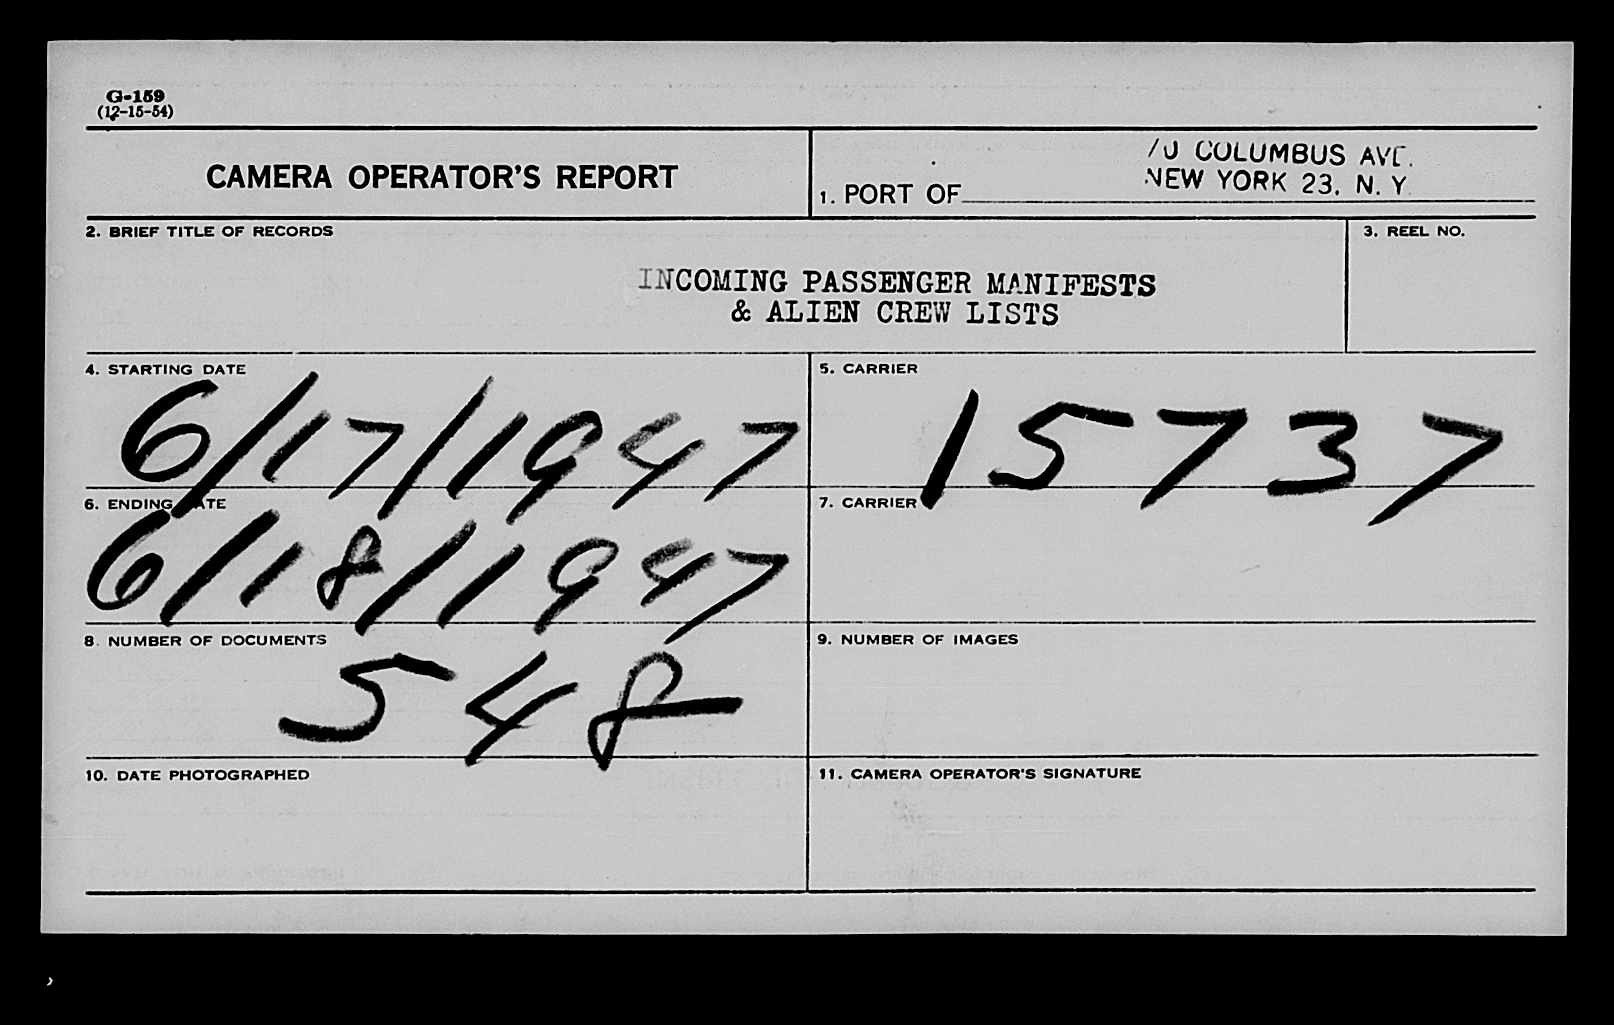 G-159
(12-15-54)
CAMERA OPERATOR'S REPORT
70 COLUMBUS AVE.
NEW YORK 23, N. Y.
1. PORT OF
2. BRIEF TITLE OF RECORDS
3. REEL NO.
INCOMING PASSENGER MANIFESTS
& ALIEN CREW LISTS
4. STARTING DATE
6/17/1947
5. CARRIER
15737
6. ENDING DATE
6/18/1947
7. CARRIER
8. NUMBER OF DOCUMENTS
548
9. NUMBER OF IMAGES
10. DATE PHOTOGRAPHED
11. CAMERA OPERATOR'S SIGNATURE